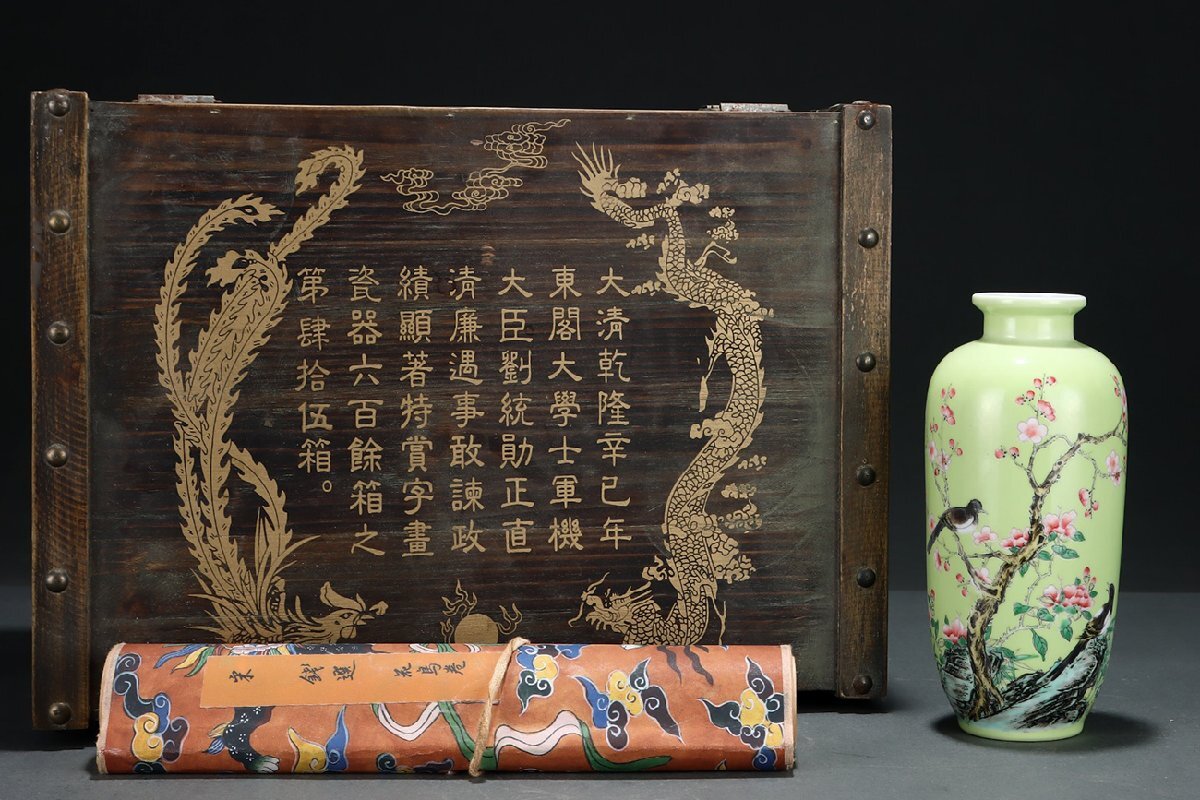 大清乾隆辛巳年
東閣大學士軍機
大臣劉統勛正直
清廉遇事敢諫政
績顯著特賞字畫
瓷器六百餘箱之
第肆拾伍箱。
宋 錢選 花鳥卷